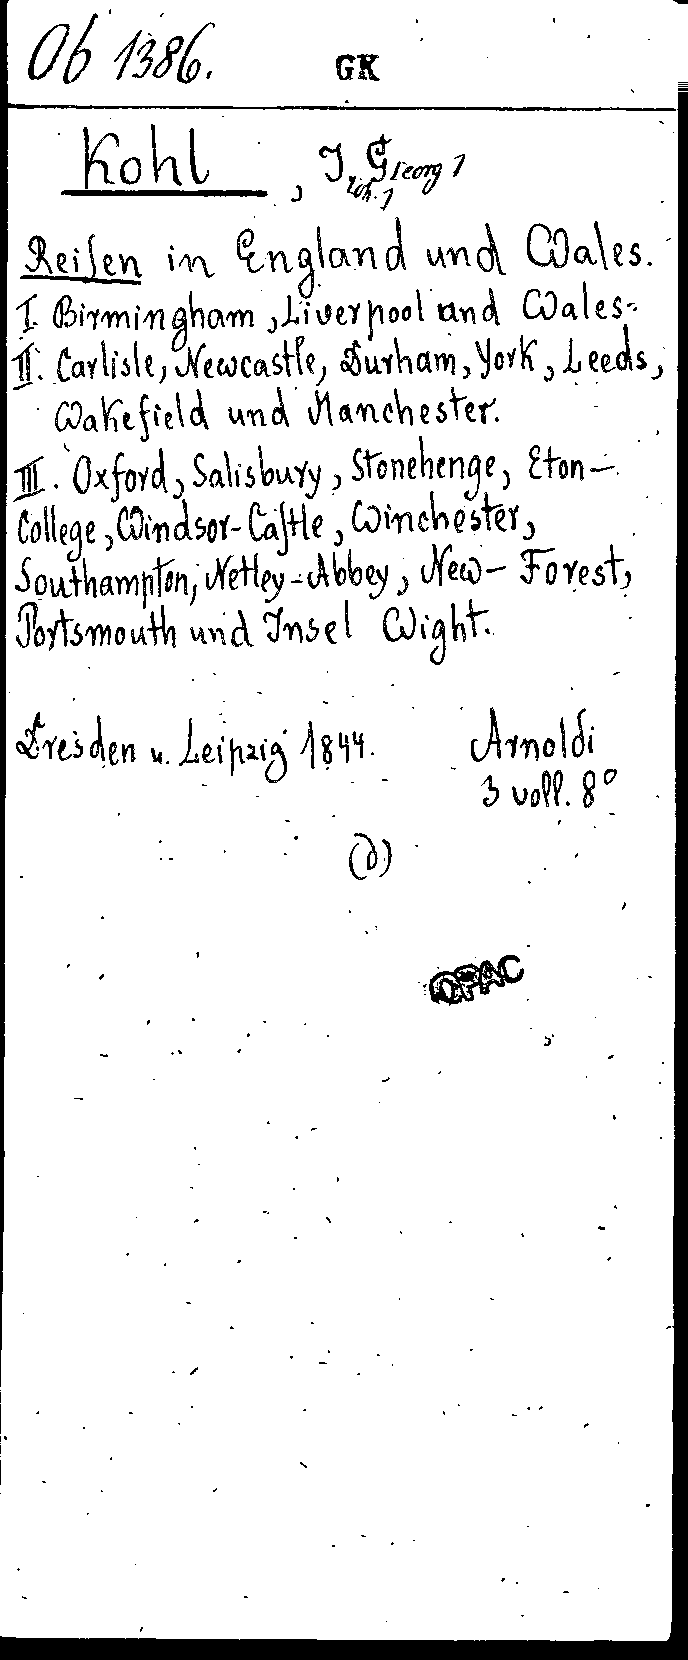 Ob 1386.
GK
Kohl, J[oh.] G[eorg]
Reisen in England und Wales.
I. Birmingham, Liverpool und Wales.
II. Carlisle, Newcastle, Durham, York, Leeds,
Wakefield und Manchester.
III. Oxford, Salisbury, Stonehenge, Eton-
College, Windsor-Caſtle, Winchester,
Southampton, Netley-Abbey, New-Forest,
Portsmouth und Insel Wight.
Dresden u. Leipzig 1844. Arnoldi
3 voll. 8°
(d)
OPAC